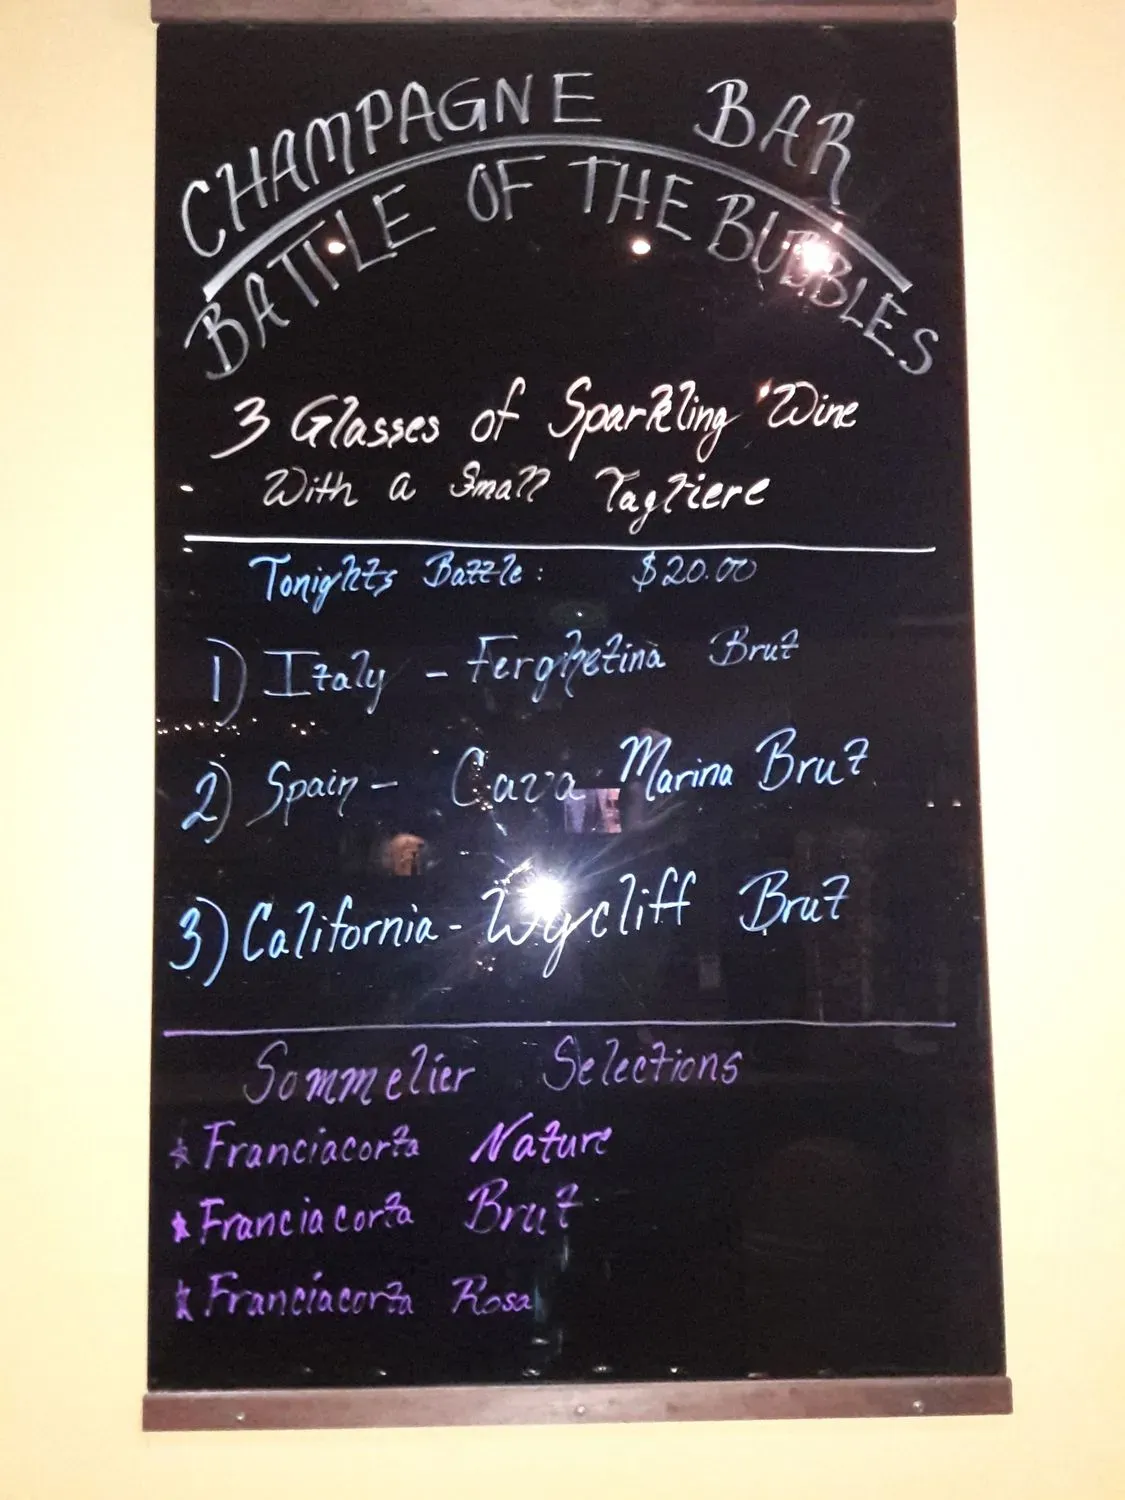 CHAMPAGNE BAR
BATTLE OF THE BUBBLES
3 Glasses of Sparkling Wine
With a Small Tagliere
Tonights Battle: $20.00
1) Italy - Ferghetina Brut
2) Spain - Cava Marina Brut
3) California - Wycliff Brut
Sommelier Selections
★ Franciacorta Nature
★ Franciacorta Brut
★ Franciacorta Rosa